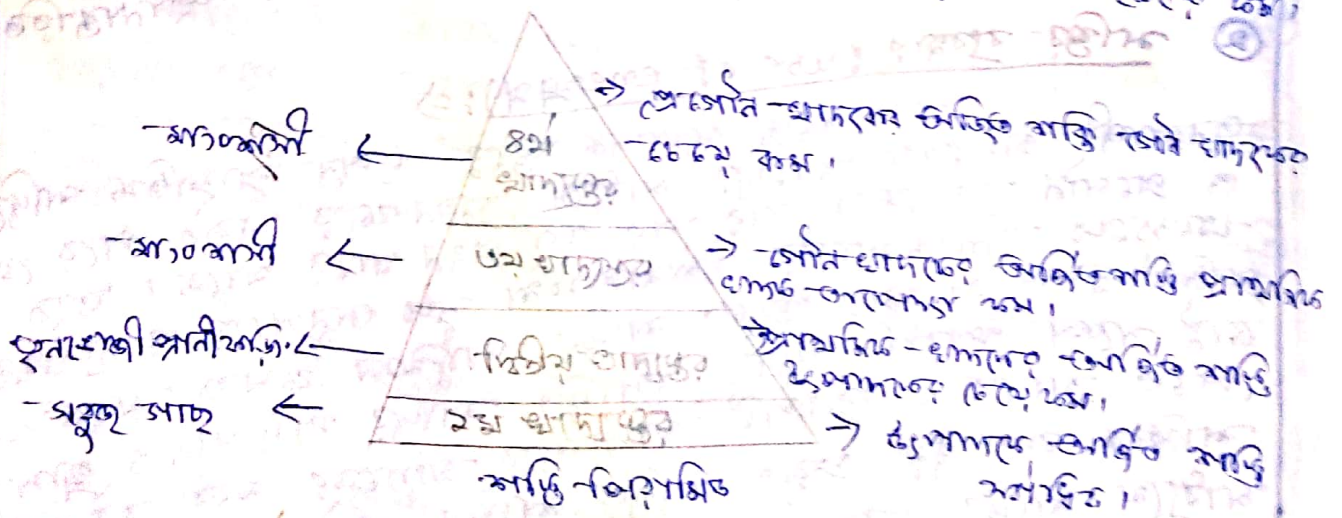 ৪
=> প্রগৌন খাদকের অর্জিত শক্তি গৌন খাদকের
চেয়ে কম।
মাংসাশী ← ৪র্থ
খাদ্যস্তর
মাংসাশী ← ৩য় খাদ্যস্তর
-> গৌন খাদকের অর্জিত শক্তি প্রাথমিক
খাদক অপেক্ষা কম।
তৃনভোজী প্রানী ← দ্বিতীয় খাদ্যস্তর
প্রাথমিক খাদকের অর্জিত শক্তি
উৎপাদকের চেয়ে কম।
সবুজ গাছ ← ১ম খাদ্য স্তর
-> উৎপাদকে অর্জিত শক্তি
সর্বাধিক।
শক্তি পিরামিড